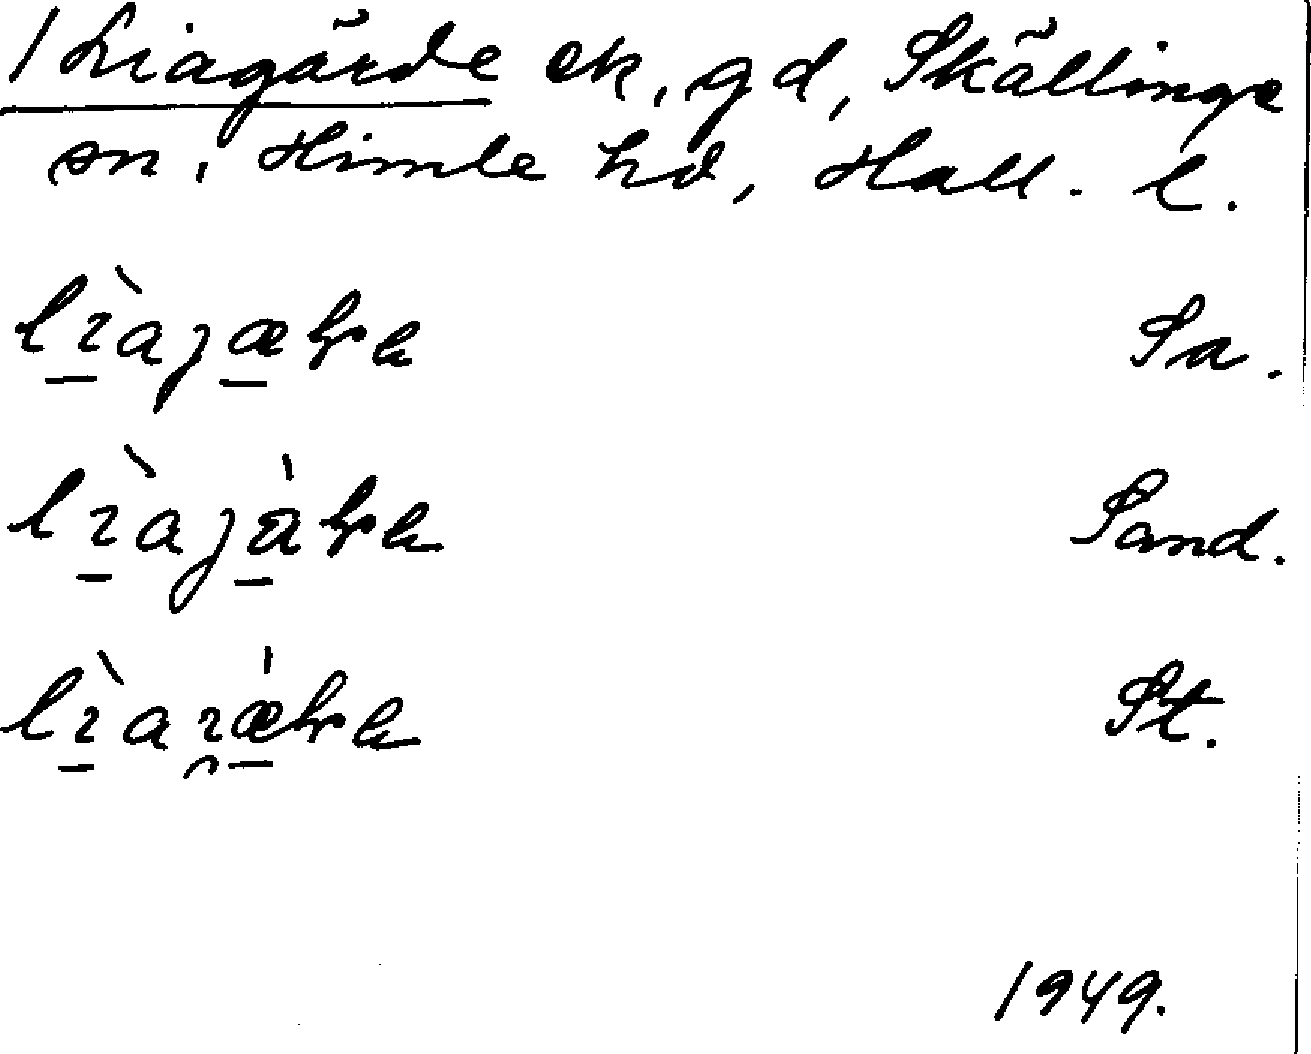 1 Liagärde ek, gd, Skällinge
sn, Himle hd, Hall. l.
lìajæra Sa.
lìajàra Sand.
St.
1949.